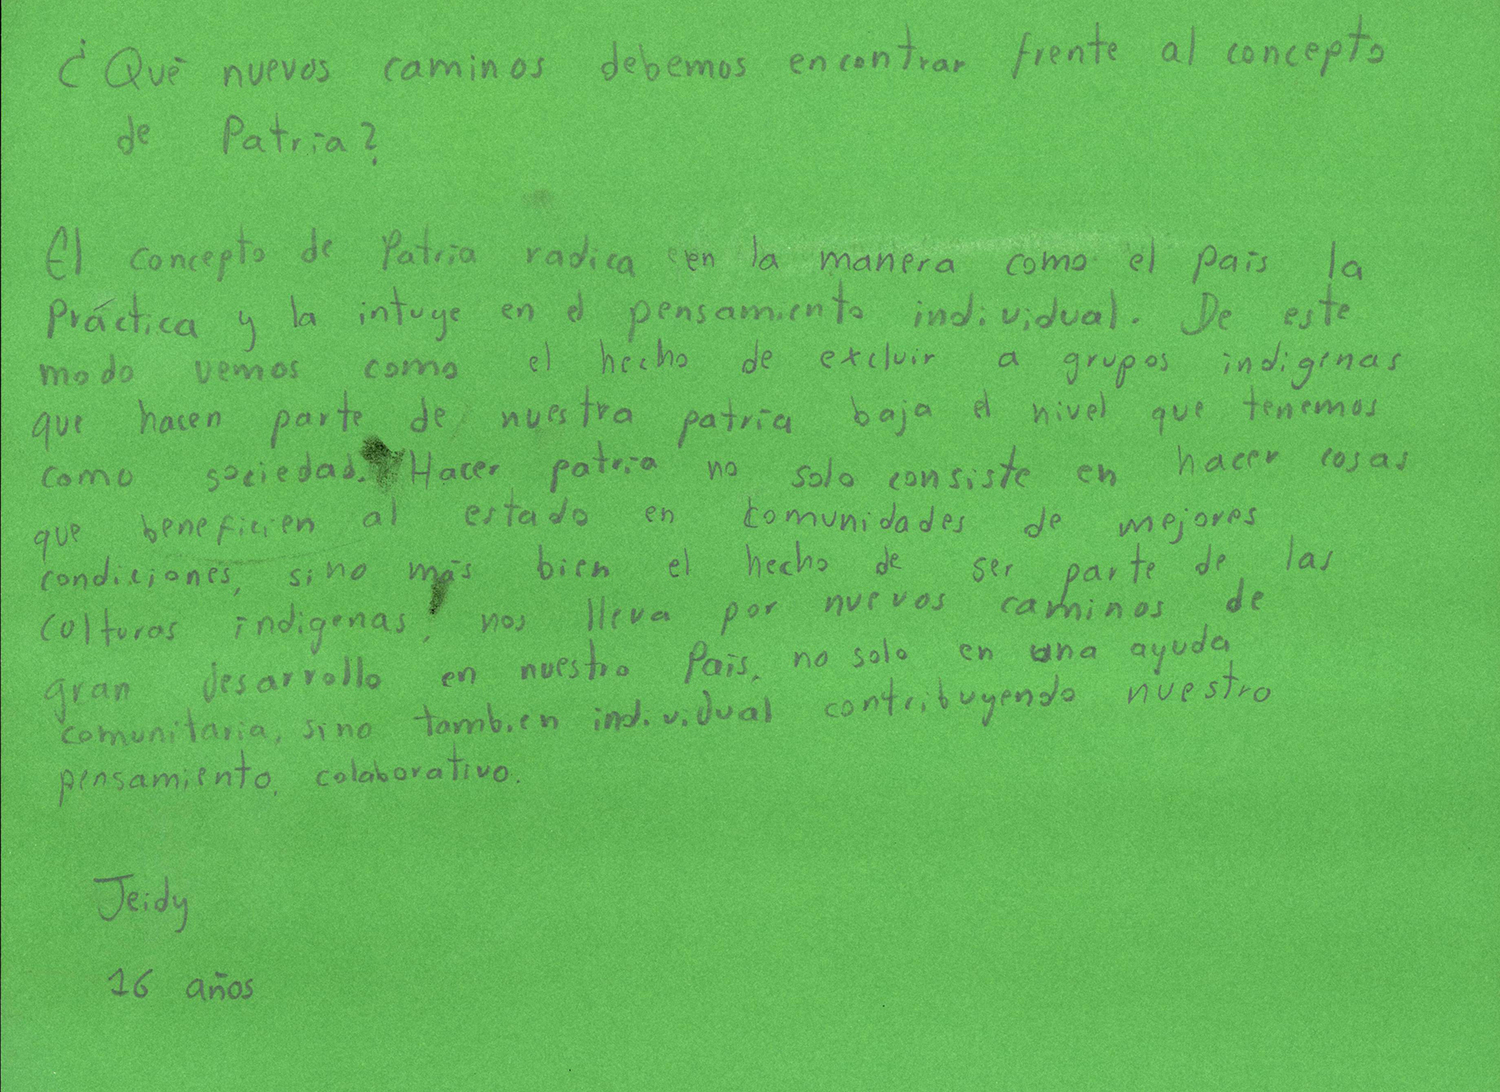 ¿Qué nuevos caminos debemos encontrar frente al concepto
de Patria?
El concepto de Patria radica en la manera como el país la
Práctica y la intuye en el pensamiento individual. De este
modo vemos como el hecho de excluir a grupos indigenas
que hacen parte de nuestra patria baja el nivel que tenemos
como sociedad. Hacer patria no solo consiste en hacer cosas
que beneficien al estado en comunidades de mejores
condiciones, sino más bien el hecho de ser parte de las
culturas indigenas, nos lleva por nuevos caminos de
gran desarrollo en nuestro País, no solo en una ayuda
comunitaria, sino tambien individual contribuyendo nuestro
pensamiento, colaborativo.
Jeidy
16 años